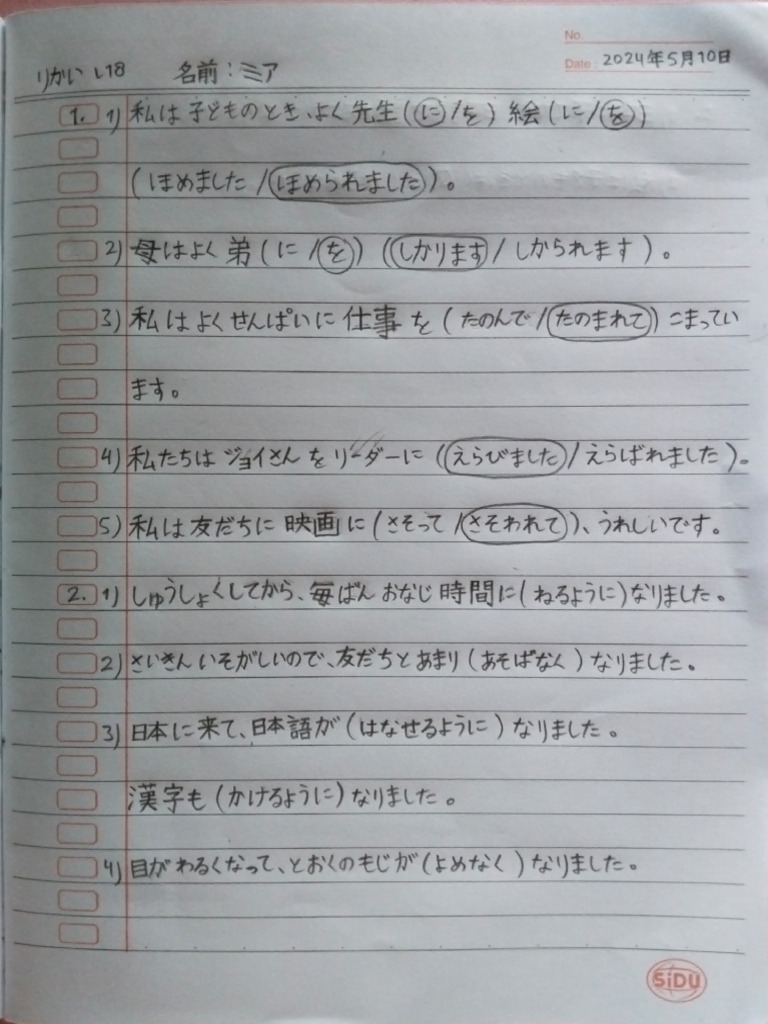 No.
りかい L18 名前：ミア Date: 2024年5月10日
1. 1) 私は子どものとき、よく先生(に/を)絵(に/を)
(ほめました/ほめられました)。
2) 母はよく弟(に/を)(しかります/しかられます)。
3) 私はよくせんぱいに仕事を(たのんで/たのまれて)こまってい
ます。
4) 私たちはジョイさんをリーダーに(えらびました/えらばれました)。
5) 私は友だちに映画に(さそって/さそわれて)、うれしいです。
2. 1) しゅうしょくしてから、毎ばんおなじ時間に(ねるように)なりました。
2) さいきんいそがしいので、友だちとあまり(あそばなく)なりました。
3) 日本に来て、日本語が(はなせるように)なりました。
漢字も(かけるように)なりました。
4) 目がわるくなって、とおくのもじが(よめなく)なりました。
SiDU